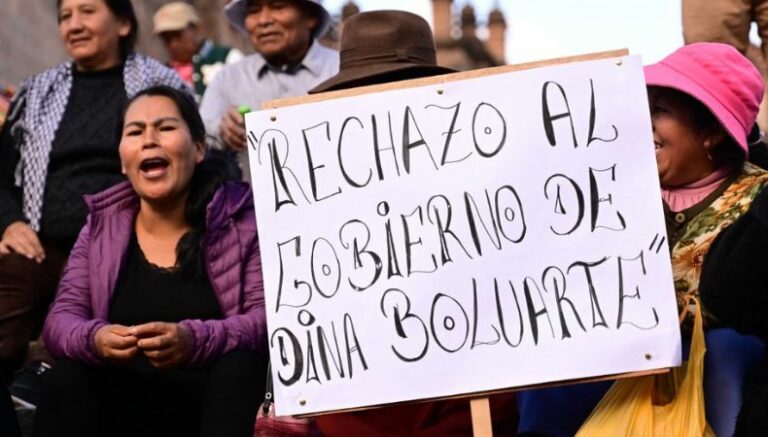 "RECHAZO AL
GOBIERNO DE
DINA BOLUARTE"